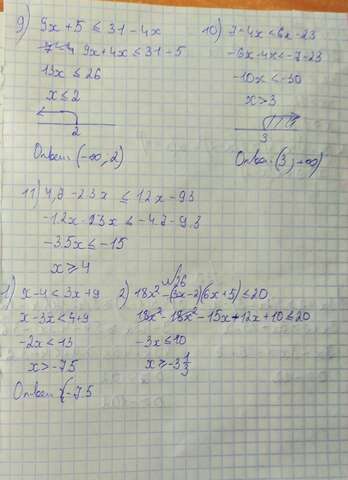 9) 9x + 5 ≤ 31 - 4x
9x + 4x ≤ 31 - 5
13x ≤ 26
x ≤ 2
2
Ответ: (-∞, 2)
10) 7 - 4x < 6x - 23
-6x - 4x < -7 - 23
-10x < -30
x > 3
3
Ответ: (3; +∞)
11) 4,2 - 23x ≤ 12x - 9,3
-12x - 23x ≤ -4,2 - 9,3
-35x ≤ -15
x ≥ 4
№26
1) x - 4 < 3x + 9
x - 3x < 4 + 9
-2x < 13
x > -7.5
Ответ: (-7.5
2) 18x² - (3x - 2)(6x + 5) ≤ 20
18x² - 18x² - 15x + 12x + 10 ≤ 20
-3x ≤ 10
x ≥ -3 1/3